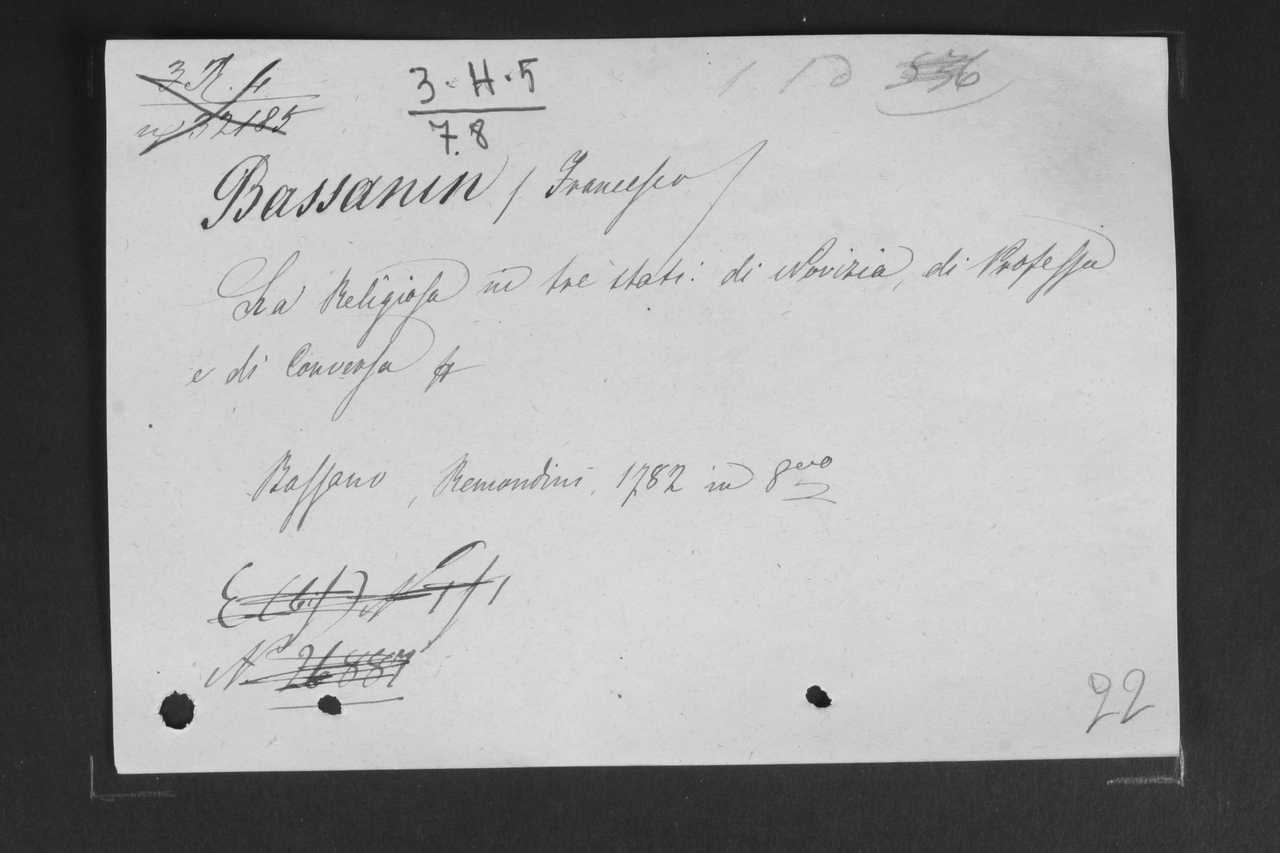 3. R. 4
3·H·5
7.8
Bassanin / Francesco /
La Religiosa in tre stati: di Novizia, di Professa
e di Conversa
Bassano, Remondini, 1782 in 8vo
N° 26887
22